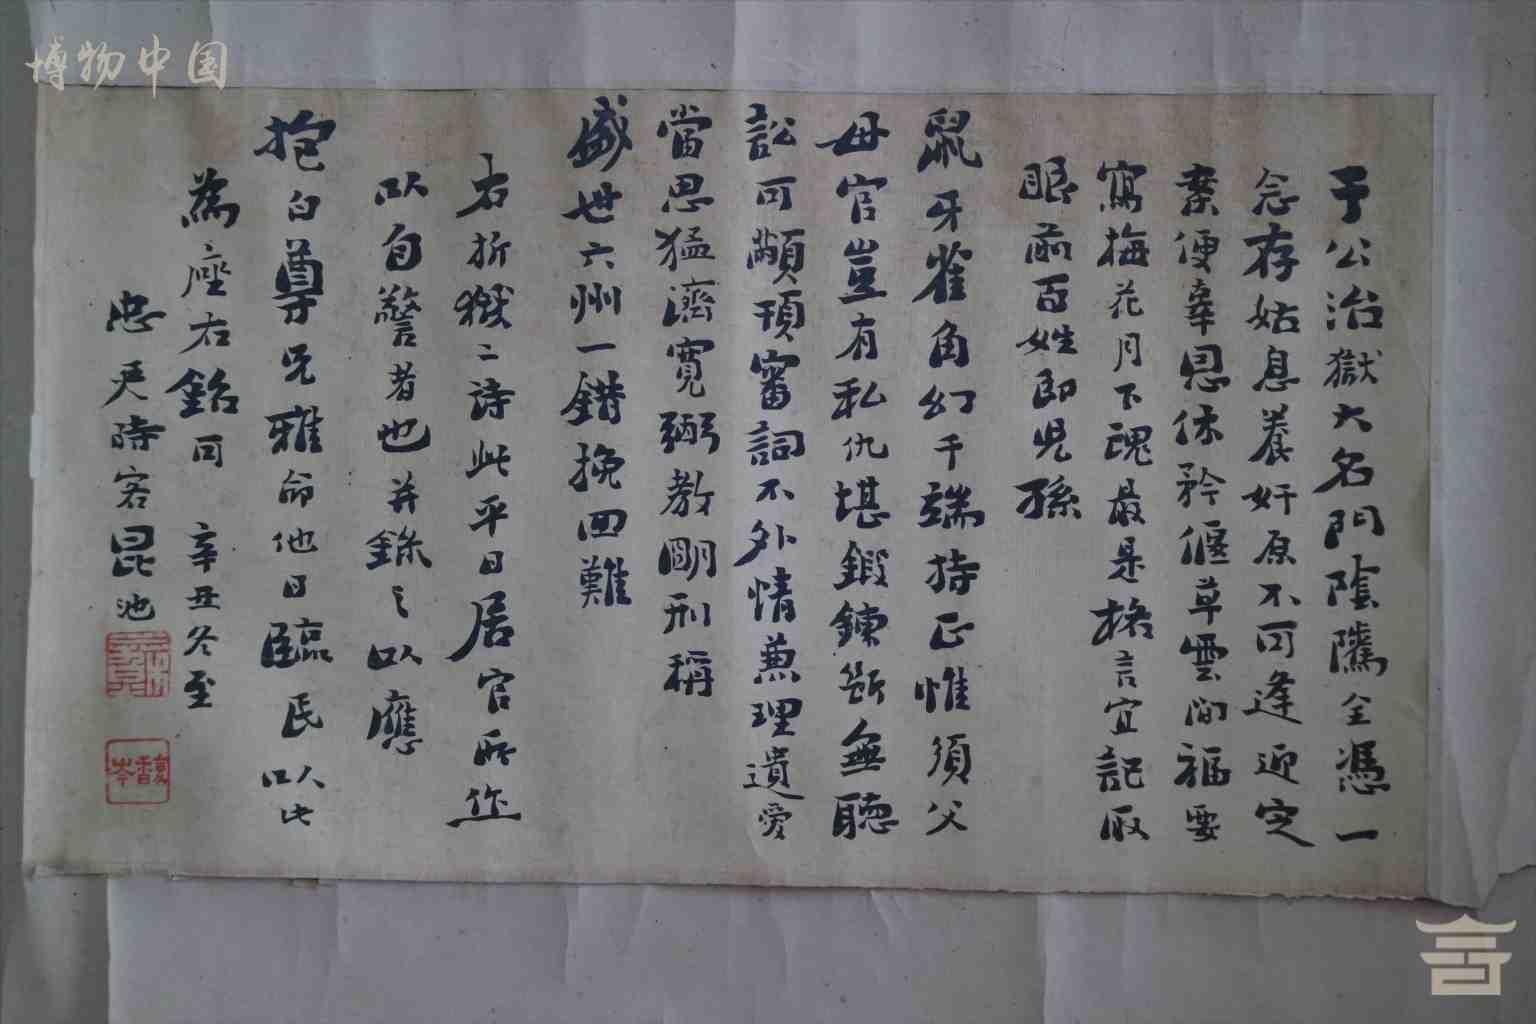 博物中国
于公治獄大名門陰隲全憑一
念存姑息養奸原不可逢迎定
案便辜恩休矜偃草雲間福要
寫梅花月下魂最是格言宜記取
眼前百姓即兒孫
鼠牙雀角幻千端持正惟須父
母官豈有私仇堪鍛鍊斷無聽
訟可顢頇審詞不外情兼理遺愛
當思猛濟寬弼教明刑稱
盛世六州一錯挽回難
右折獄二詩此平日居官所作
以自警者也并錄之以應
抱白尊兄雅命他日臨民以此
為座右銘可 辛丑冬至
忠 時客昆池
馥香岑